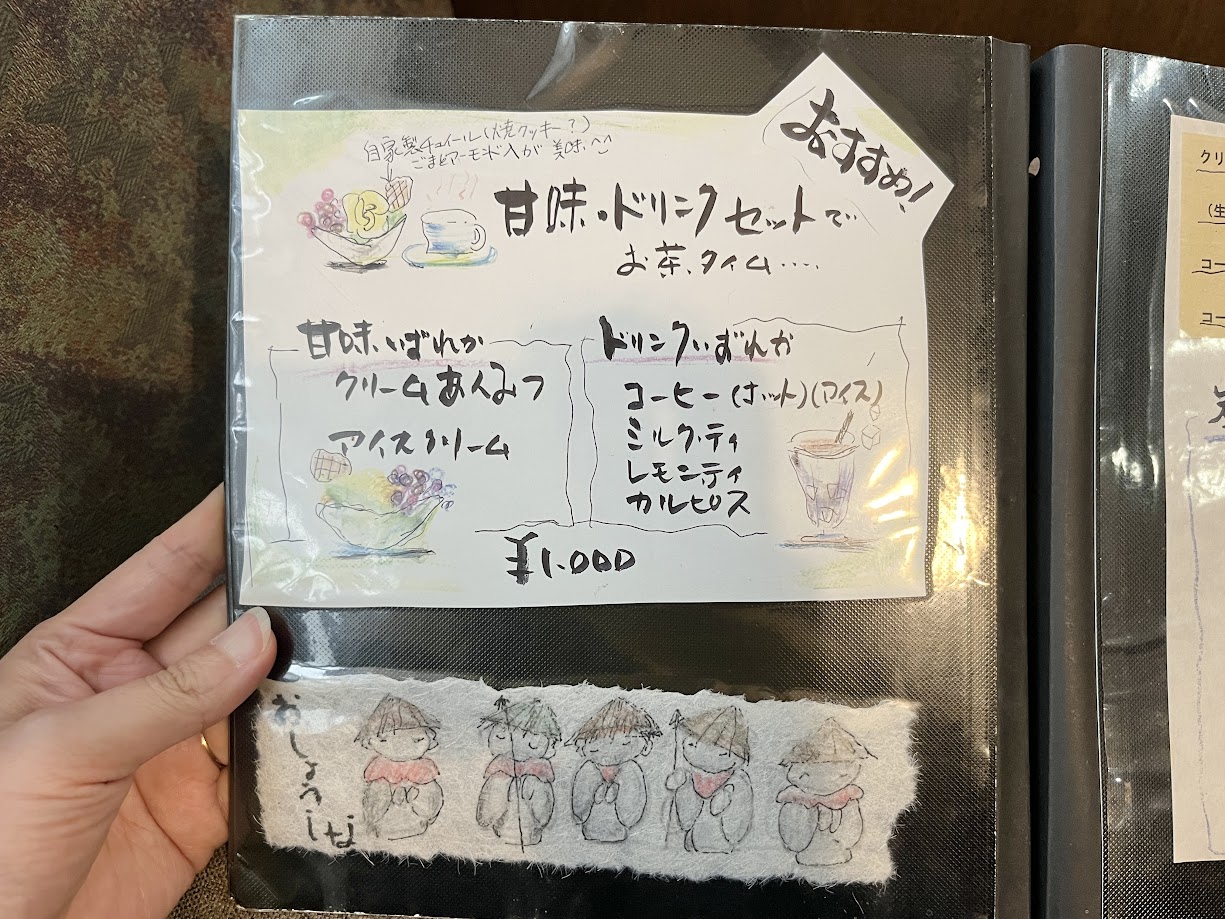 おすすめ!
自家製チュイール(焼クッキー?)
ごまとアーモンド入が美味^^
甘味・ドリンクセットで
お茶、タイム・・・・
甘味、いずれか
クリームあんみつ
アイスクリーム
ドリンクいずれか
コーヒー(ホット)(アイス)
ミルク・ティ
レモンティ
カルピス
¥1.000
おしょうしな
クリ
(生
コー
コー